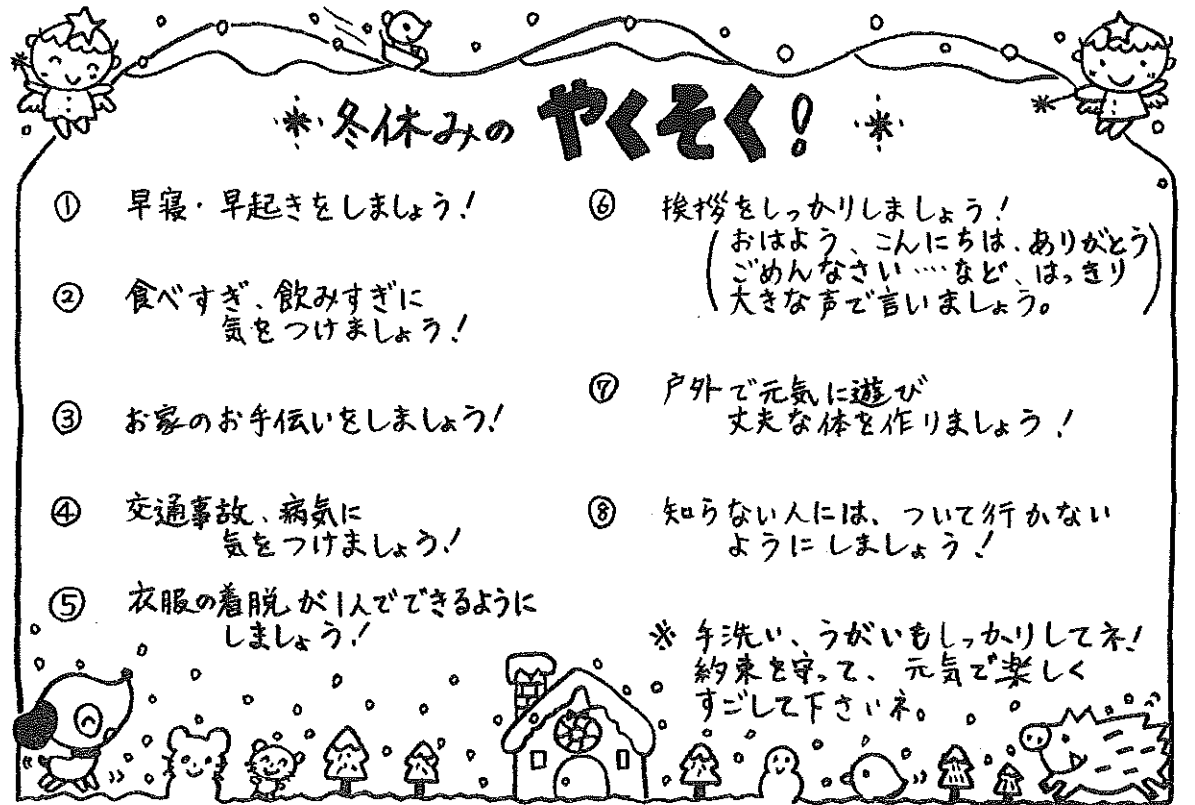 冬休みの やくそく!
① 早寝・早起きをしましょう!
② 食べすぎ、飲みすぎに
気をつけましょう!
③ お家のお手伝いをしましょう!
④ 交通事故、病気に
気をつけましょう!
⑤ 衣服の着脱が1人でできるように
しましょう!
⑥ 挨拶をしっかりしましょう!
(おはよう、こんにちは、ありがとう
ごめんなさい‥‥など、はっきり
大きな声で言いましょう。)
⑦ 戸外で元気に遊び
丈夫な体を作りましょう!
⑧ 知らない人には、ついて行かない
ようにしましょう!
※ 手洗い、うがいもしっかりしてネ!
約束を守って、元気で楽しく
すごして下さいネ。